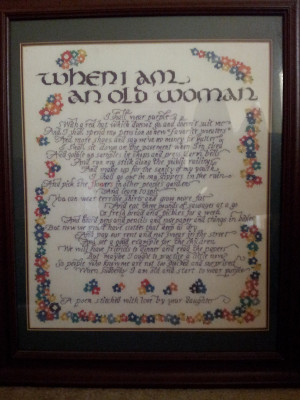 WHEN I AM
AN OLD WOMAN
I shall wear purple
With a red hat which doesn't go and doesn't suit me
And I shall spend my pension on
And say we've no money for butter
I shall sit down on the pavement when I'm tired
And gobble up samples in shops and press alarm bells
And run my stick along the public railings
And make up for the sobriety of my youth
I shall go out in my slippers in the rain
And pick the flowers in other people's gardens
And learn to spit
You can wear terrible shirts and grow more fat
And eat three pounds of sausages at a go
Or bread and pickles for a week
And hoard pens and pencils and and things in boxes
But now we must have clothes that keep us dry
And pay our rent and not swear in the street
And set a good example for the children
We will have friends to dinner and read the papers
But maybe I ought to practice a little now?
So people who know me are not too shocked and surprised
When suddenly I am old and start to wear purple
A poem, stitched with love by your daughter